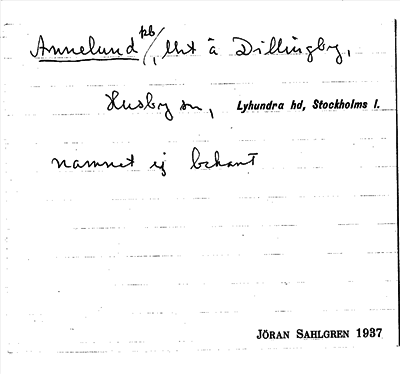 Annelund pb/, lht å Dillingby,
Husby sn, Lyhundra hd, Stockholms l.
namnet ej bekant
JÖRAN SAHLGREN 1937